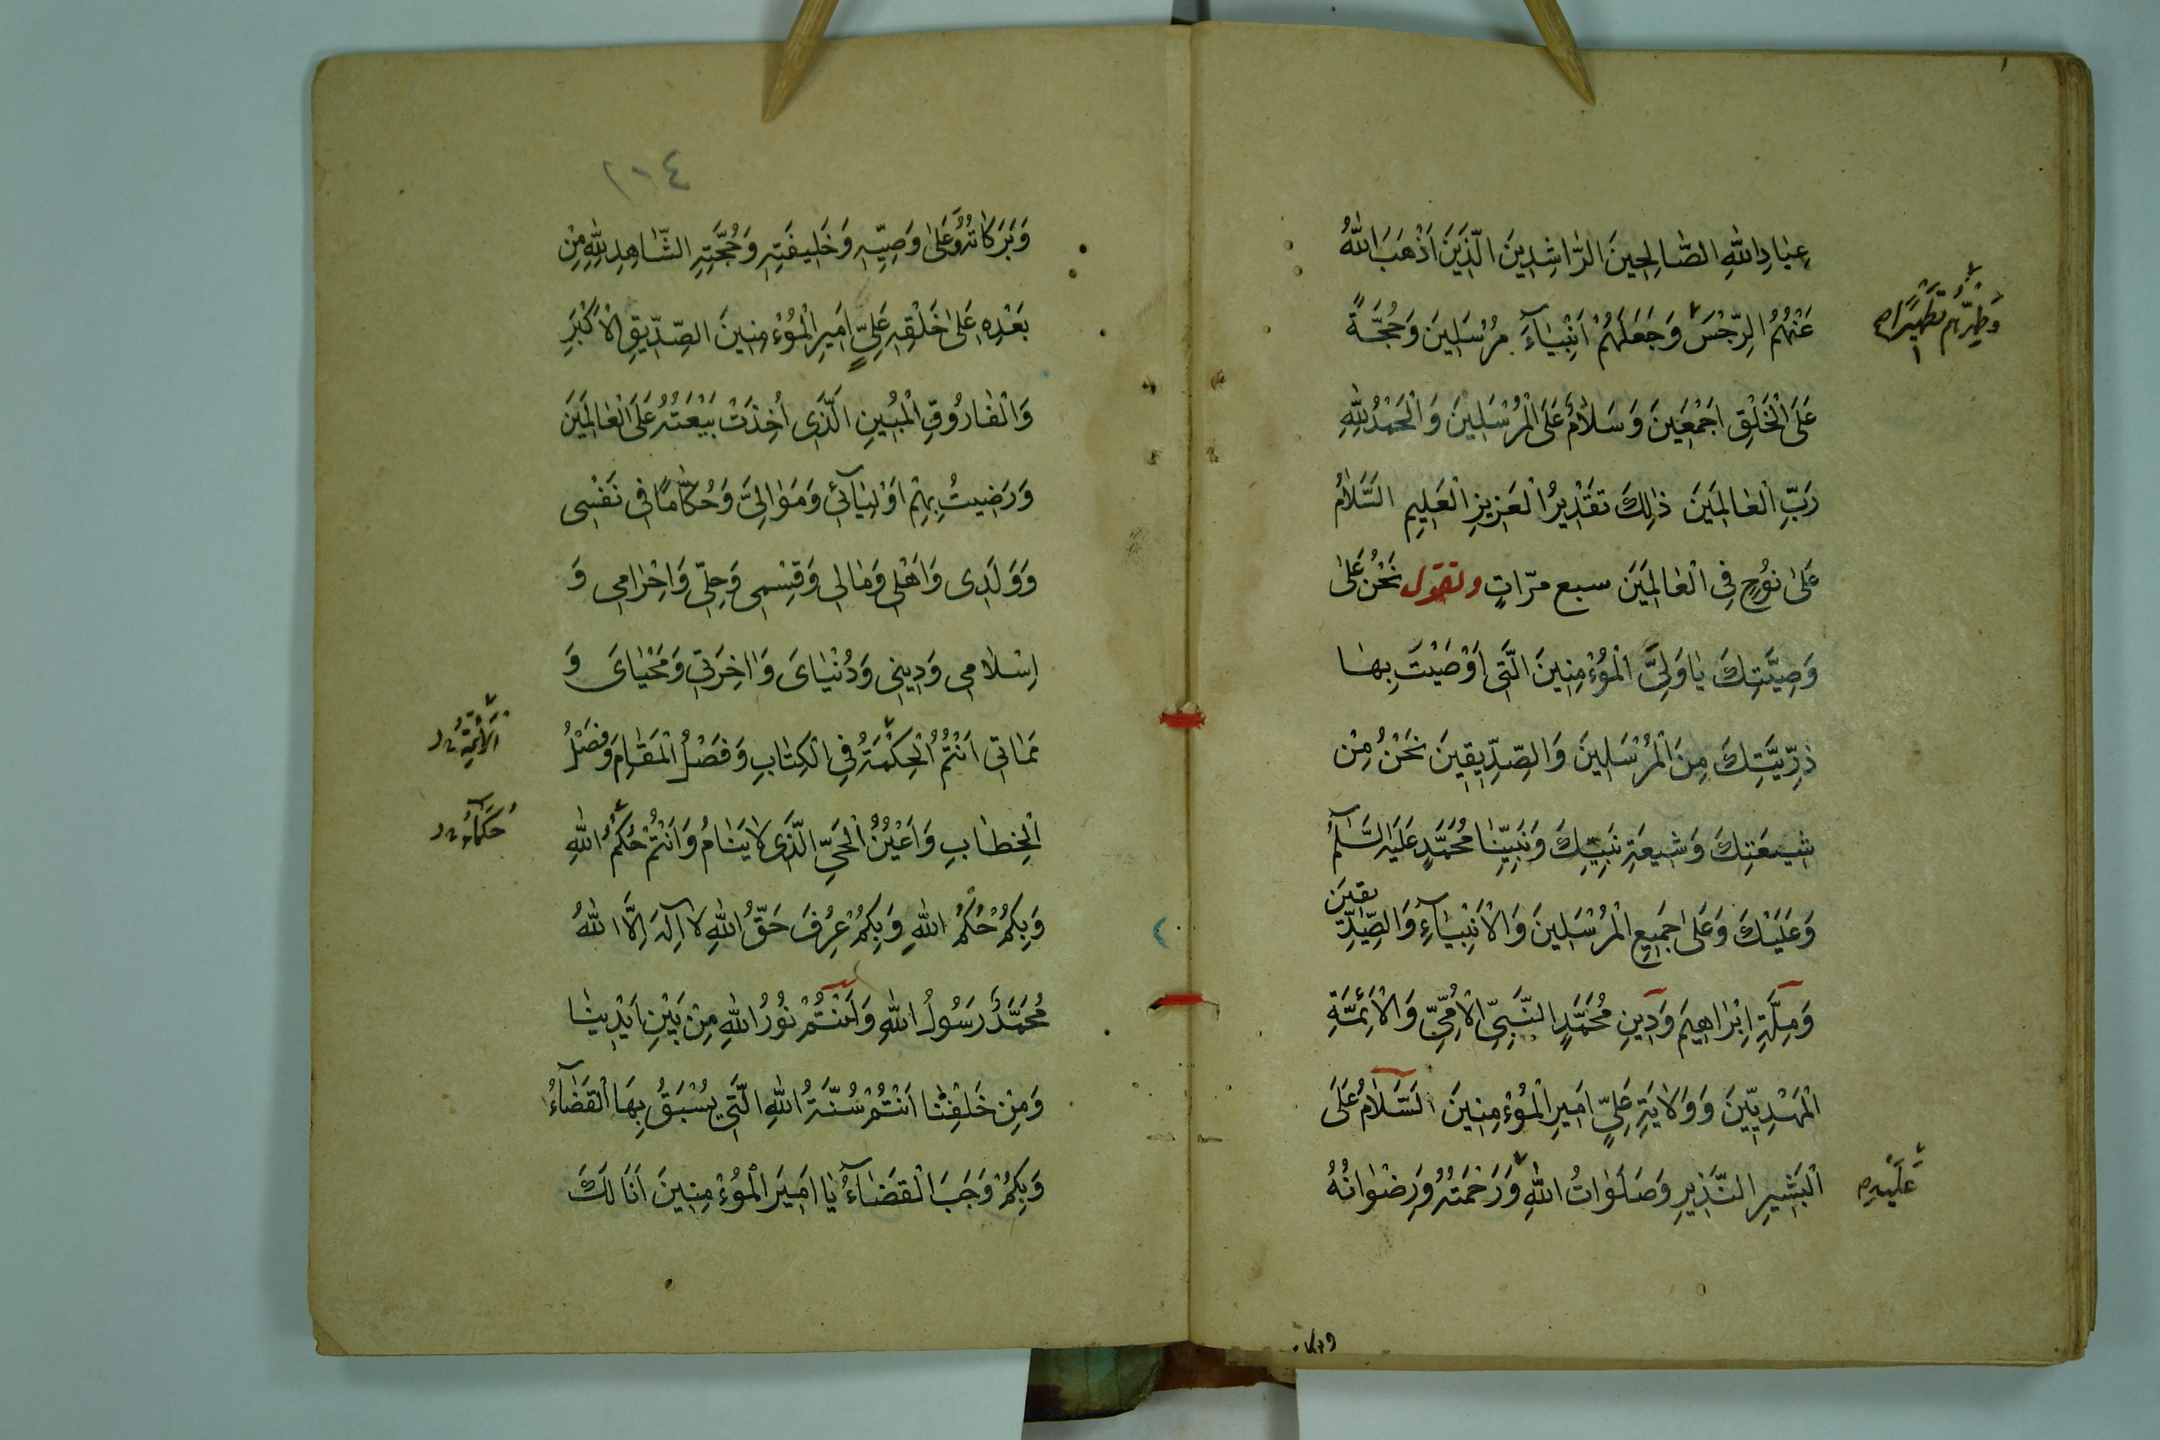 عِبَادِ اللّٰهِ الصَّالِحِينَ الرَّاشِدِينَ الَّذِينَ اَذْهَبَ اللّٰهُ
عَنْهُمُ الرِّجْسَ وَجَعَلَهُمْ اَنْبِيَآءَ مُرْسَلِينَ وَحُجَّةً
وَطَهَّرَهُمْ تَطْهِيرًا
عَلَى الْخَلْقِ اَجْمَعِينَ وَسَلَامٌ عَلَى الْمُرْسَلِينَ وَالْحَمْدُ لِلّٰهِ
رَبِّ الْعَالَمِينَ ذٰلِكَ تَقْدِيرُ الْعَزِيزِ الْعَلِيمِ السَّلَامُ
عَلَىٰ نُوحٍ فِي الْعَالَمِينَ سبع مرّاتٍ وتقول نَحْنُ عَلَىٰ
وَصِيَّتِكَ يَا وَلِيَّ الْمُؤْمِنِينَ الَّتِي اَوْصَيْتَ بِهَا
ذُرِّيَّتِكَ مِنَ الْمُرْسَلِينَ وَالصِّدِّيقِينَ نَحْنُ مِنْ
شِيعَتِكَ وَشِيعَةِ نَبِيِّكَ وَنَبِيِّنَا مُحَمَّدٍ عَلَيْهِ السَّلَامُ
وَعَلَيْكَ وَعَلَىٰ جَمِيعِ الْمُرْسَلِينَ وَالْاَنْبِيَآءِ وَالصِّدِّيقِينَ
وَمِلَّةِ اِبْرَاهِيمَ وَدِينِ مُحَمَّدٍ النَّبِيِّ الْاُمِّيِّ وَالْاَئِمَّةِ
الْمَهْدِيِّينَ وَوَلَايَةِ عَلِيٍّ اَمِيرِ الْمُؤْمِنِينَ السَّلَامُ عَلَى
الْبَشِيرِ النَّذِيرِ وَصَلَوَاتُ اللّٰهِ وَرَحْمَتُهُ وَرِضْوَانُهُ
عَلَيْهِ
وبركا
١٠٤
وَبَرَكَاتُهُ وَعَلَىٰ وَصِيِّهِ وَخَلِيفَتِهِ وَحُجَّتِهِ الشَّاهِدِ لِلّٰهِ مِنْ
بَعْدِهِ عَلَىٰ خَلْقِهِ عَلِيٍّ اَمِيرِ الْمُؤْمِنِينَ الصِّدِّيقِ الْاَكْبَرِ
وَالْفَارُوقِ الْمُبِينِ الَّذِي اُخِذَتْ بَيْعَتُهُ عَلَى الْعَالَمِينَ
وَرَضِيتُ بِهِمْ اَوْلِيَآئِي وَمَوَالِيَّ وَحُكَّامًا فِي نَفْسِي
وَوَلَدِي وَاَهْلِي وَمَالِي وَقِسْمِي وَحِلِّي وَاِحْرَامِي وَ
اِسْلَامِي وَدِينِي وَدُنْيَايَ وَاٰخِرَتِي وَمَحْيَايَ وَ
مَمَاتِي اَنْتُمُ الْحِكْمَةُ فِي الْكِتَابِ وَفَصْلُ الْمَقَامِ وَفَصْلُ
الْاَئِمَّةُ
الْخِطَابِ وَاَعْيُنُ الْحَيِّ الَّذِي لَا يَنَامُ وَاَنْتُمْ حُكْمُ اللّٰهِ
حُكَمَاءُ
وَبِكُمْ حُكْمُ اللّٰهِ وَبِكُمْ عُرِفَ حَقُّ اللّٰهِ لَا اِلٰهَ اِلَّا اللّٰهُ
مُحَمَّدٌ رَسُولُ اللّٰهِ وَاَنْتُمْ نُورُ اللّٰهِ مِنْ بَيْنِ اَيْدِينَا
وَمِنْ خَلْفِنَا اَنْتُمْ سُنَّةُ اللّٰهِ الَّتِي يُسْبَقُ بِهَا الْقَضَآءُ
وَبِكُمْ وَجَبَ الْقَضَآءُ يَا اَمِيرَ الْمُؤْمِنِينَ اَنَا لَكَ